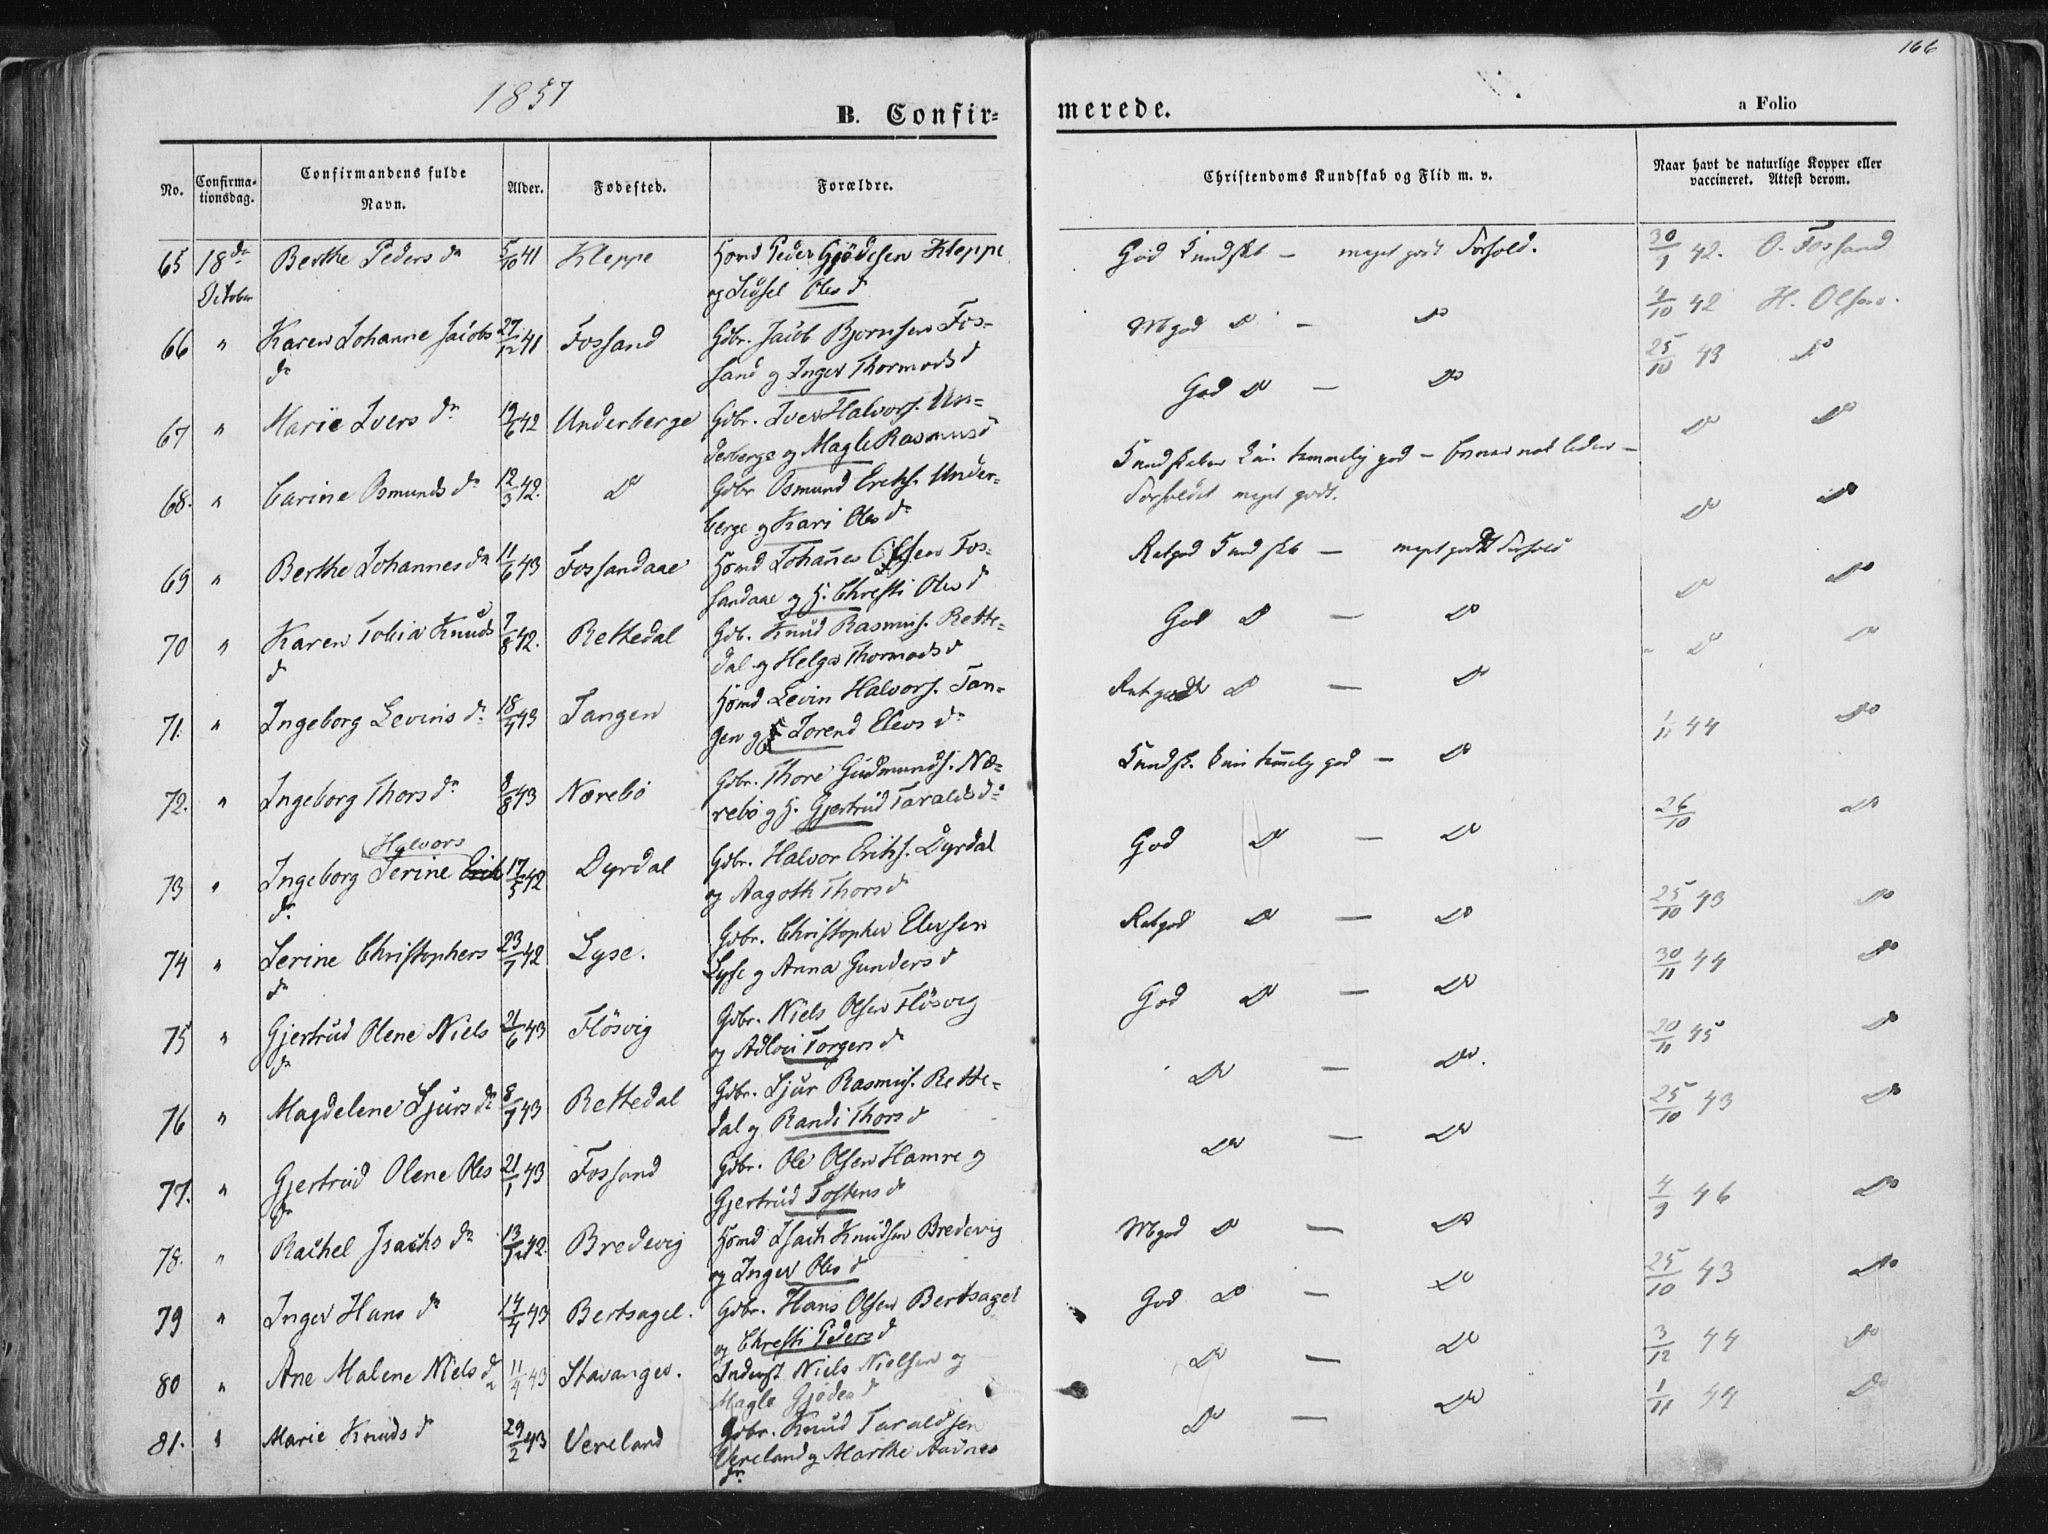 1857
166
B. Confir-
merede.
a Folio
No.
Confirma-
tionsdag.
Confirmandens fulde
Navn.
Alder.
Fødested.
Forældre.
Christendoms Kundskab og Flid m. v.
Naar havt de naturlige Kopper eller
vaccineret. Attest derom.
65 18de Berthe Peders dr 5/10 41 Kleppe Hsmd Peder Gjödesen Kleppe
October og Sidsel Oles d
God Kundskb — meget godt Forhold. 30/9 42. O. Fossand
66 " Karen Johanne Jacobs 27/12 41 Fossand Gdbr. Jacob Bjornsen Fos-
dr sand og Inger Thormods d
Mgod Do — Do 4/10 42 H. Olsen.
67 " Marie Ivers dr 19/6 42 Underberge Gdbr. Iver Halvors. Un-
derberge og Magle Rasmus d
God Do — Do 25/10 43 Do
68. " Carine Osmunds dr 12/3 42. Do Gdbr Osmund Eriks. Under-
berge og Kari Oles dr
Kundskaben kun temmelig god —
Forholdet meget godt. Do Do
69 " Berthe Johannes dr 11/6 43 Fossandaae Hsmd Johannes Olsen Fos-
sandaae og H. Christi Oles d
Retgod Kundskb — meget godt Forhold Do Do
70 " Karen Tobia Knuds 7/8 42. Rettedal Gdb. Knud Rasmus. Rette-
d dal og Helga Thormods d
God Do — Do Do Do
71. " Ingeborg Levins dr 18/7 43 Tangen Hsmd Levin Halvors. Tan-
gen og Torend Elevs dr
Retgod Do — Do Do Do
72. " Ingeborg Thors dr 8/8 43 Nærebö Gdbr. Thore Gudmunds. Næ-
rebö og H. Gjertrud Taralds dr
Kundsk. kun temelig god — Do 1/11 44 Do
Halvors
73 " Ingeborg Serine Erik 17/5 42 Dyrdal Gdbr. Halvor Eriks. Dyrdal
dr og Aagoth Thors d
God Do — Do 26/10 Do
74 " Serine Christophers 23/7 42 Lyse. Gdbr. Christopher Elevsen
dr Lyse og Anna Gunders d
Retgod Do — Do 25/10 43 Do
75 " Gjertrud Olene Niels 21/6 43 Flösvig Gdbr. Niels Olsen Flösvig
dr og Adlov Torgers dr
God Do — Do 30/11 44 Do
76 " Magdelene Sjurs dr 8/7 43 Rettedal Gdbr. Sjur Rasmus. Rette-
dal og Randi Thors d
Do — Do. 20/11 45 Do
77. " Gjertrud Olene Oles 21/1 43 Fossand Gdbr. Ole Olsen Hamre og
dr Gjertrud Tostens dr
Do — Do 25/10 43 Do
78. " Rachel Isachs dr 13/12 42. Bredevig Hsmd Isach Knudsen Bredevig
og Inger Oles d
Mgod Do — Do 4/9 46 Do
79 " Inger Hans dr 14/4 43 Bertsagel. Gdbr. Hans Olsen Bertsagel
og Christi Peders d
God Do — Do 25/10 43 Do
80 " Ane Malene Niels dr 11/4 43 Stavanger. Inderst Niels Nielsen og
Magla Gjödes d
Do — Do 3/12 44 Do
81. " Marie Knuds dr 29/2 43 Vereland Gdbr. Knud Taraldsen
Vereland og Marthe Aadnes
dr
Do — Do 1/11 44 Do